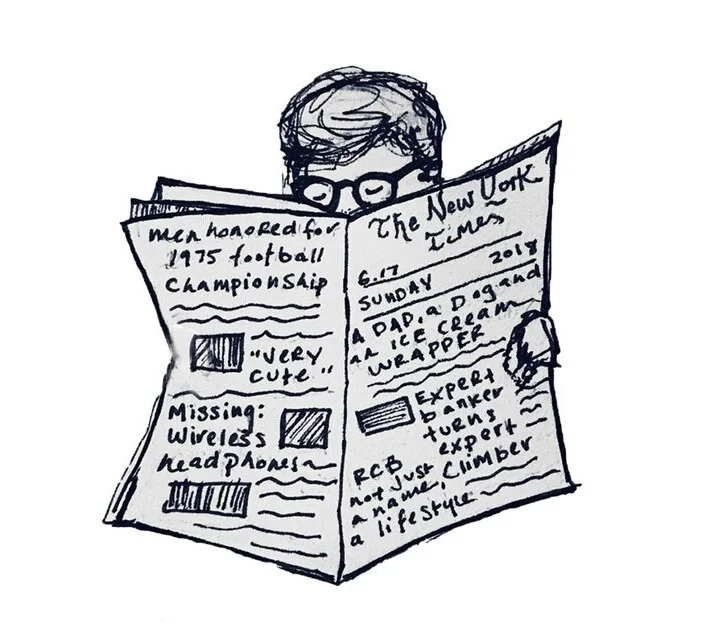 men honored for
1975 football
championship
"very
cute"
Missing:
Wireless
headphones
The New York
Times
6.17 2018
SUNDAY
A DAD, a Dog and
an ICE CREAM
WRAPPER
EXPERT
banker
turns
expert
Climber
RCB
not just
a name,
a lifestyle